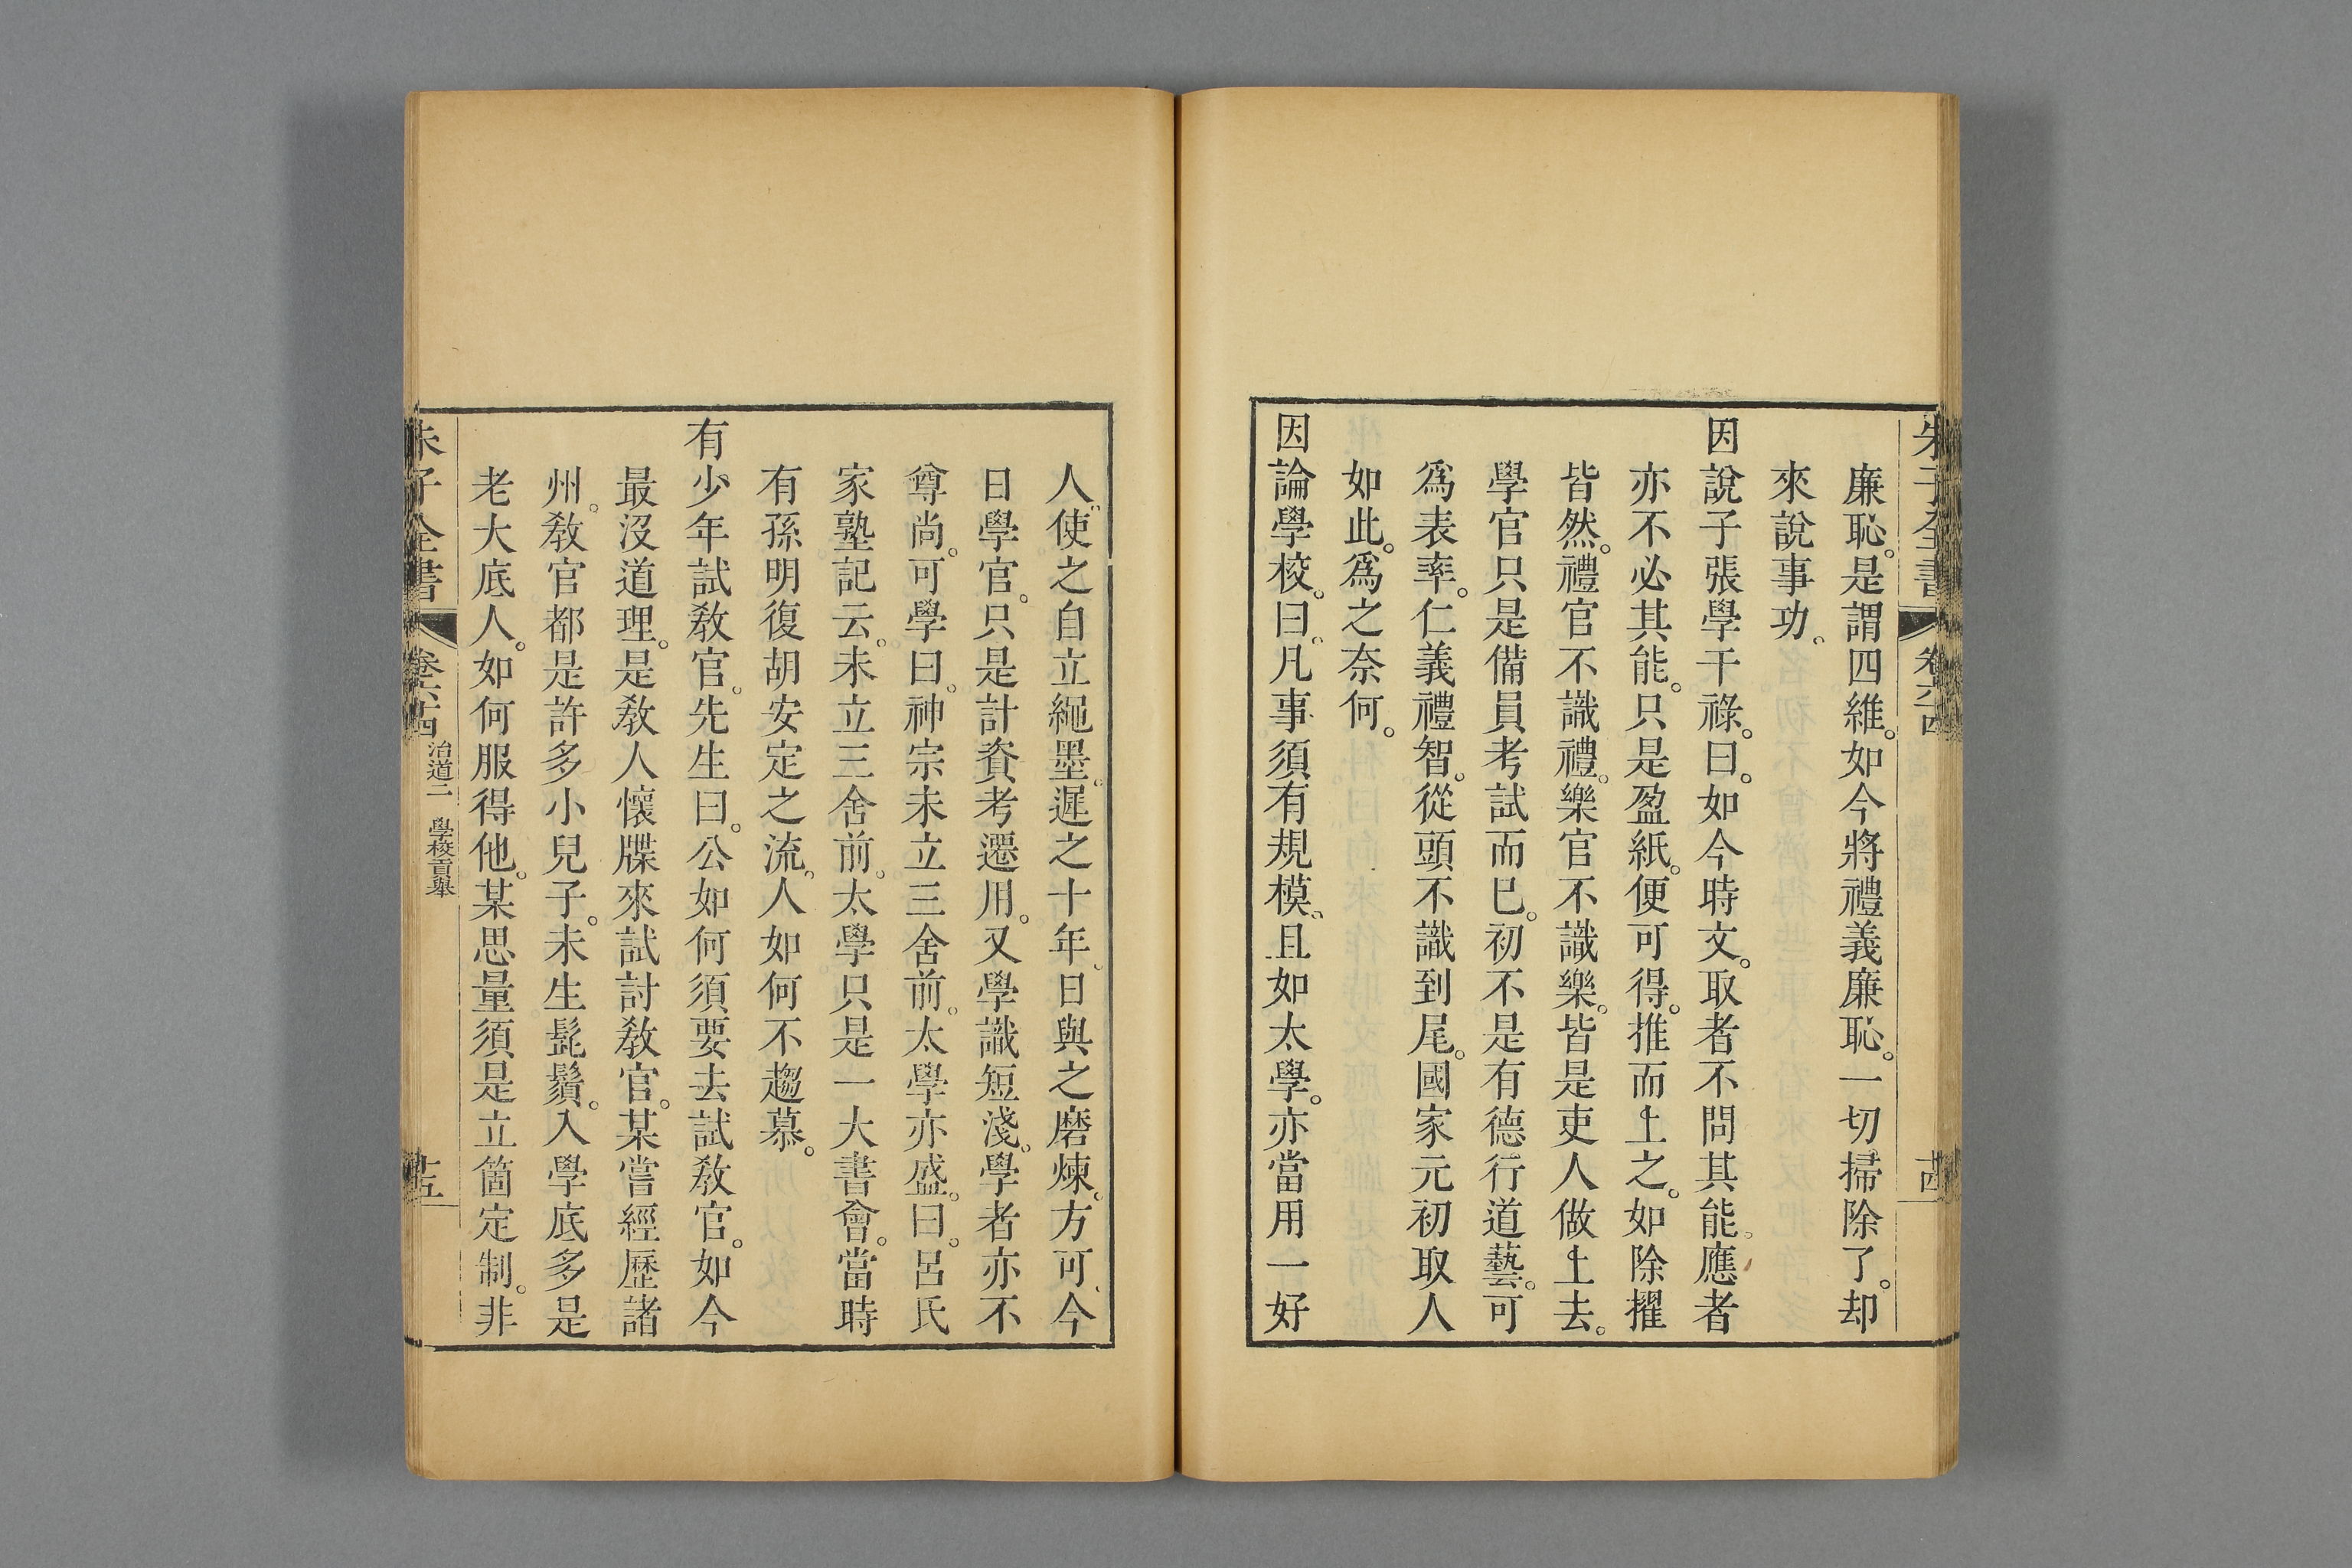 朱子全書 卷六十四 十四
廉恥。是謂四維。如今將禮義廉恥。一切掃除了。却
來說事功。
因說子張學干祿。曰。如今時文。取者不問其能。應者
亦不必其能。只是盈紙。便可得。推而上之。如除擢
皆然。禮官不識禮。樂官不識樂。皆是吏人做上去。
學官只是備員考試而已。初不是有德行道藝。可
爲表率。仁義禮智。從頭不識到尾。國家元初取人
如此。爲之奈何。
因論學校。曰。凡事須有規模。且如太學。亦當用一好
人。使之自立繩墨。遲之十年。日與之磨煉。方可。今
日學官。只是計資考遷用。又學識短淺。學者亦不
尊尚。可學曰。神宗未立三舍前。太學亦盛。曰。呂氏
家塾記云。未立三舍前。太學只是一大書會。當時
有孫明復胡安定之流。人如何不趨慕。
有少年試敎官。先生曰。公如何須要去試敎官。如今
最沒道理。是敎人懷牒來試討敎官。某嘗經歷諸
州。敎官都是許多小兒子。未生髭鬚。入學底多是
老大底人。如何服得他。某思量須是立箇定制。非
朱子全書 卷六十四 治道二 學校貢舉 十五